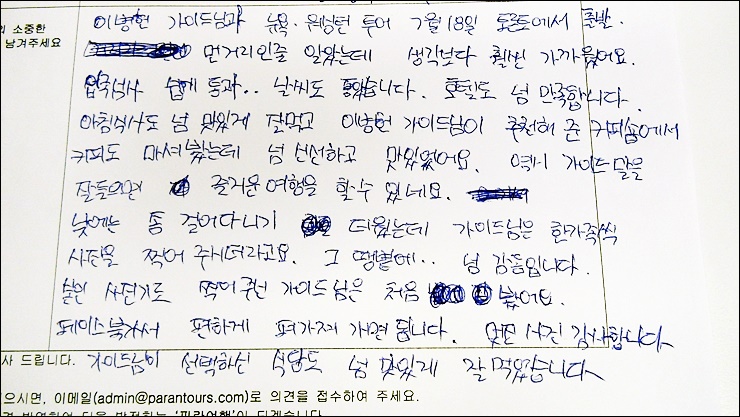 의 소중한
남겨주세요
이병헌 가이드님과 뉴욕. 워싱턴 투어 7월 18일 토론토에서 출발.
먼거리인줄 알았는데 생각보다 훨씬 가까웠어요.
입국심사 쉽게 통과.. 날씨도 좋았습니다. 호텔도 넘 만족합니다.
아침식사도 넘 맛있게 잘먹고 이병헌 가이드님이 추천해 준 커피숍에서
커피도 마셔봤는데 넘 신선하고 맛있었어요. 역시 가이드 말을
잘들으면 즐거운 여행을 할 수 있네요.
낮에는 좀 걸어다니기 더웠는데 가이드님은 한가족씩
사진을 찍어 주시더라고요. 그 땡볕에.. 넘 감동입니다.
사진기로 찍어 주신 가이드님은 처음 봤어요.
페이스북가서 편하게 퍼가재 가면 됩니다. 멋진 사진 감사합니다
사 드립니다. 가이드님이 선택하신 식당도 넘 맛있게 잘 먹었습니다
으시면, 이메일(admin@parantours.com)로 의견을 접수하여 주세요.